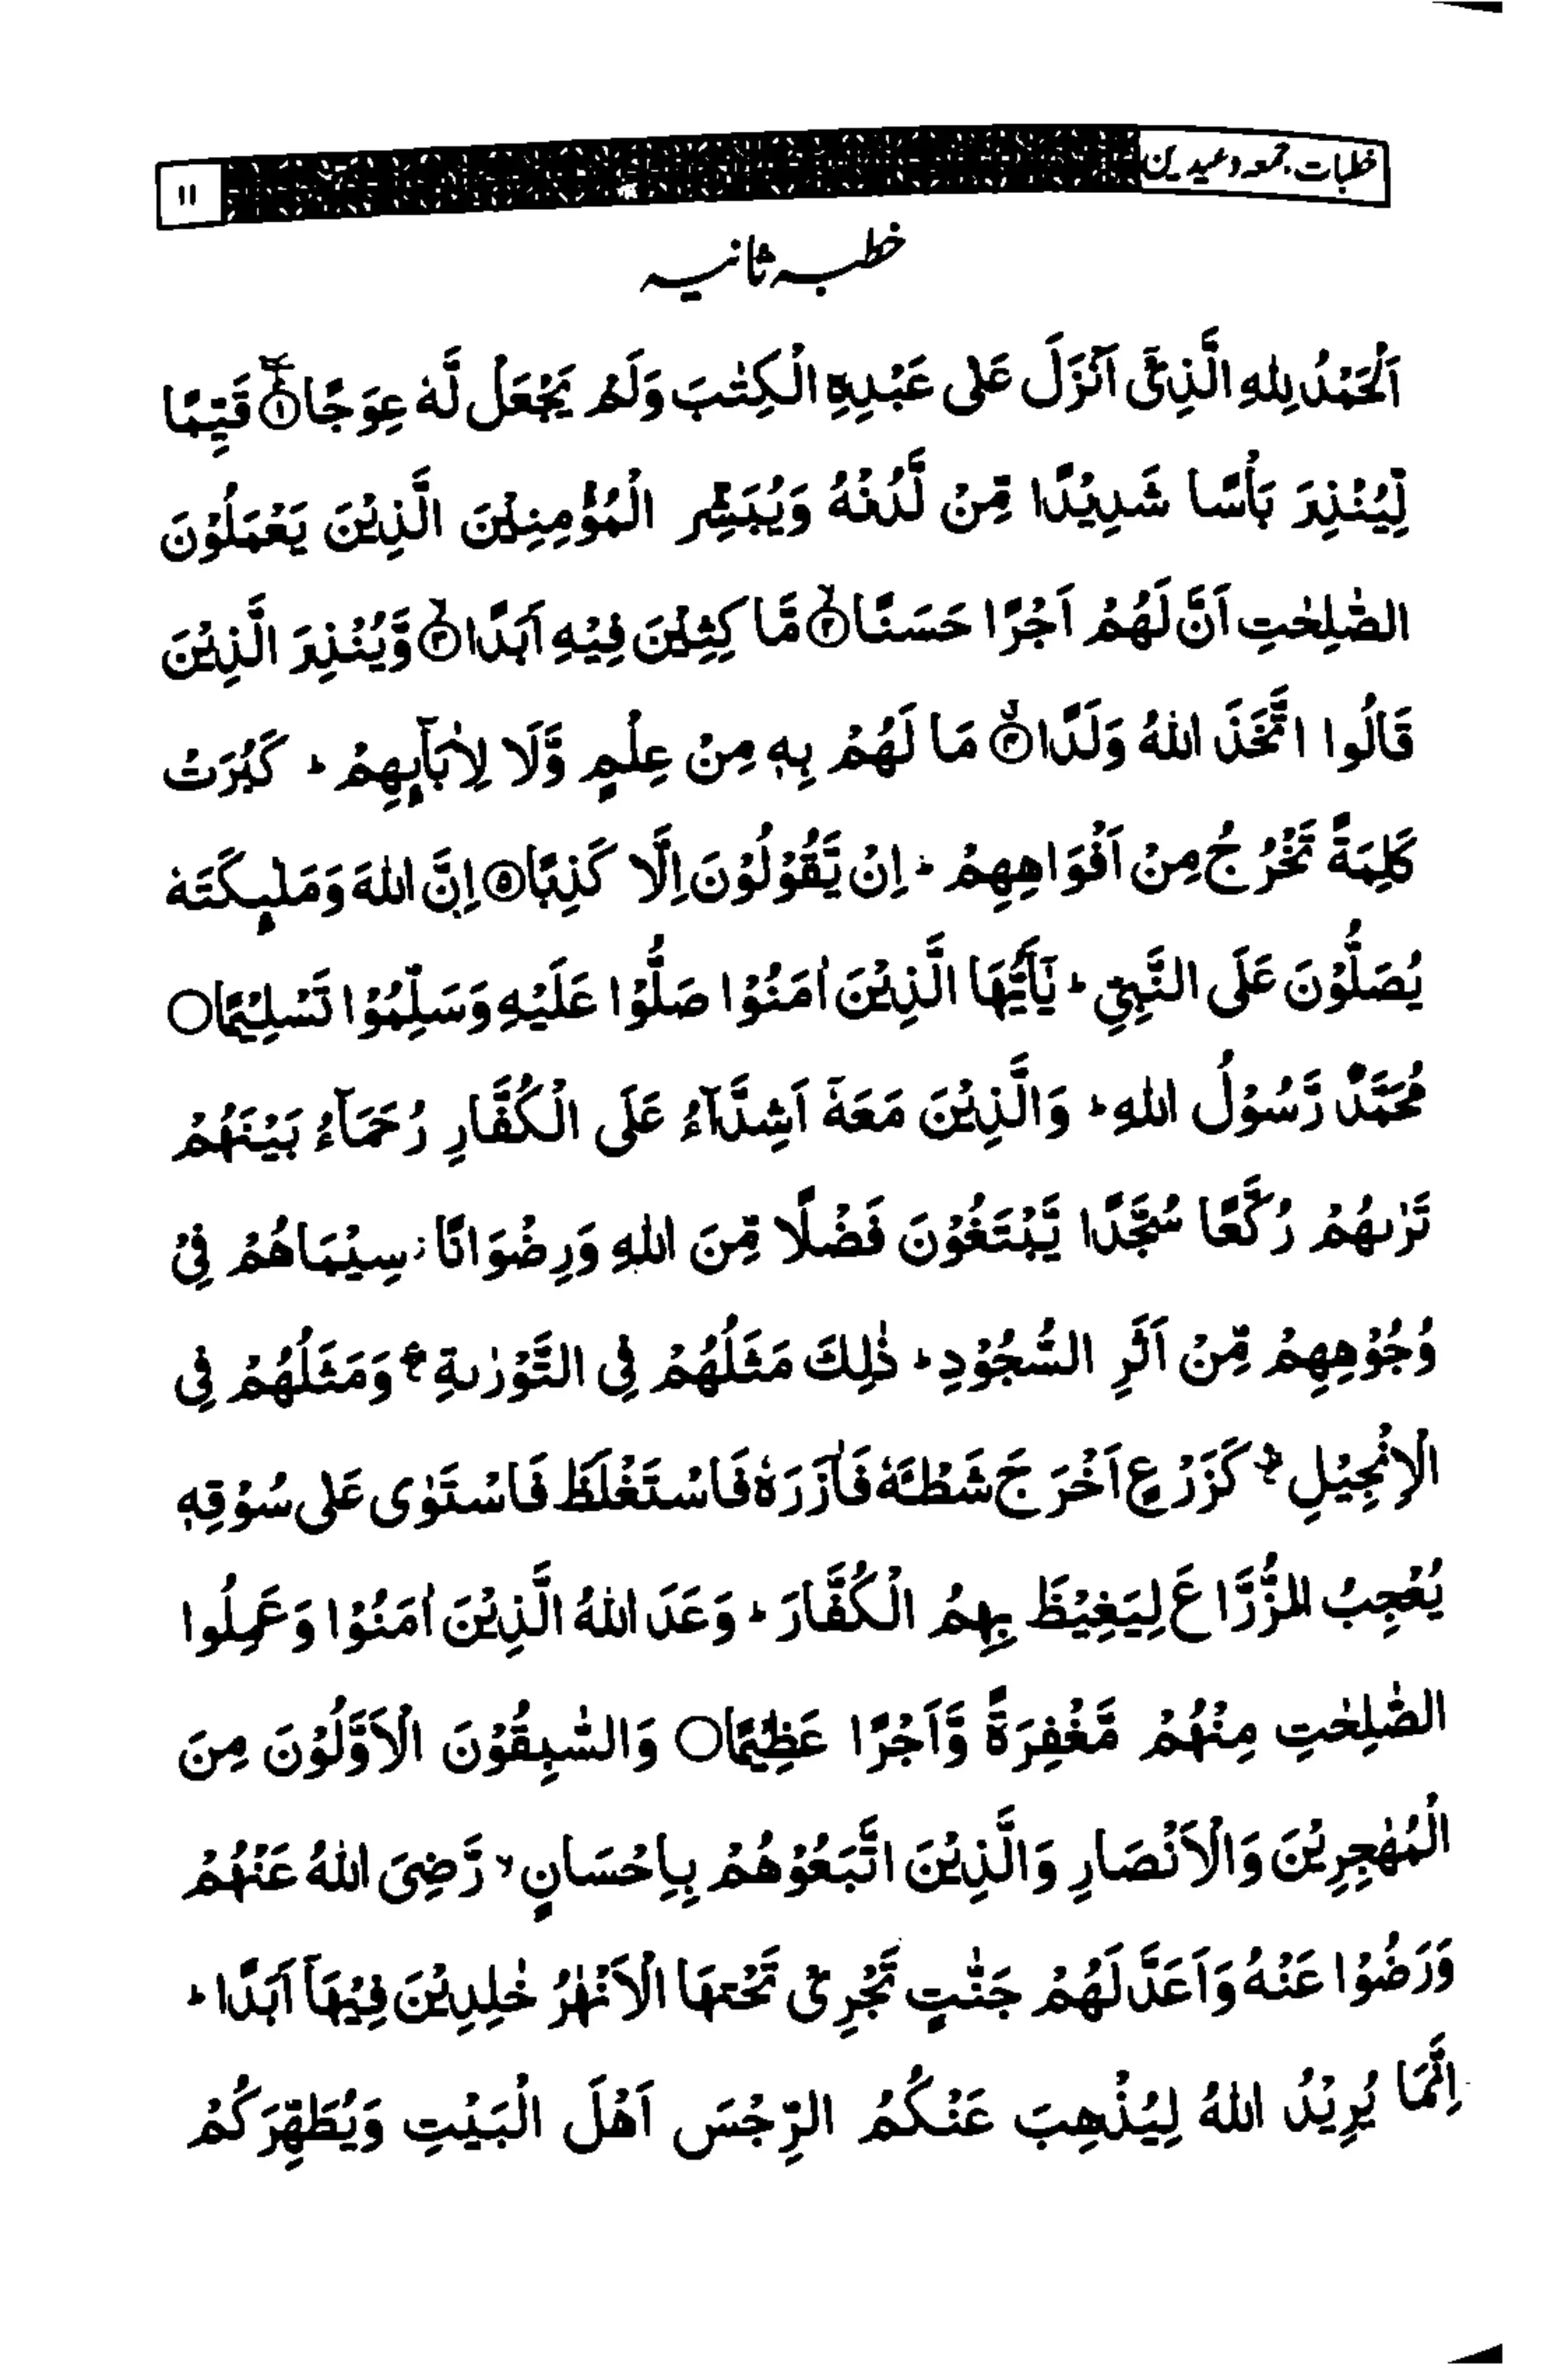 خطبات جمعہ و عیدین ۱۱
خطبہ ثانیہ
اَلْحَمْدُ لِلهِ الَّذِیْۤ اَنْزَلَ عَلٰی عَبْدِهِ الْکِتٰبَ وَلَمْ یَجْعَلْ لَّهٗ عِوَجًا ؕ۱ قَیِّمًا
لِّیُنْذِرَ بَاْسًا شَدِیْدًا مِّنْ لَّدُنْهُ وَیُبَشِّرَ الْمُؤْمِنِیْنَ الَّذِیْنَ یَعْمَلُوْنَ
الصّٰلِحٰتِ اَنَّ لَهُمْ اَجْرًا حَسَنًا ۙ۲ مَّا کِثِیْنَ فِیْهِ اَبَدًا ۙ۳ وَّیُنْذِرَ الَّذِیْنَ
قَالُوا اتَّخَذَ اللهُ وَلَدًا ۙ۴ مَا لَهُمْ بِهٖ مِنْ عِلْمٍ وَّلَا لِاٰبَآىِٕهِمْ ؕ کَبُرَتْ
کَلِمَةً تَخْرُجُ مِنْ اَفْوَاهِهِمْ ؕ اِنْ یَّقُوْلُوْنَ اِلَّا کَذِبًا ۵ اِنَّ اللهَ وَمَلٰىِٕکَتَهٗ
یُصَلُّوْنَ عَلَی النَّبِیِّ ؕ یٰۤاَیُّهَا الَّذِیْنَ اٰمَنُوْا صَلُّوْا عَلَیْهِ وَسَلِّمُوْا تَسْلِیْمًا ○
مُحَمَّدٌ رَّسُوْلُ اللهِ ؕ وَالَّذِیْنَ مَعَهٗۤ اَشِدَّآءُ عَلَی الْکُفَّارِ رُحَمَآءُ بَیْنَهُمْ
تَرٰىهُمْ رُکَّعًا سُجَّدًا یَّبْتَغُوْنَ فَضْلًا مِّنَ اللهِ وَرِضْوَانًا ؗ سِیْمَاهُمْ فِیْ
وُجُوْهِهِمْ مِّنْ اَثَرِ السُّجُوْدِ ؕ ذٰلِکَ مَثَلُهُمْ فِی التَّوْرٰىةِ ۛۖ وَمَثَلُهُمْ فِی
الْاِنْجِیْلِ ۛ۫ کَزَرْعٍ اَخْرَجَ شَطْـَٔهٗ فَاٰزَرَهٗ فَاسْتَغْلَظَ فَاسْتَوٰی عَلٰی سُوْقِهٖ
یُعْجِبُ الزُّرَّاعَ لِیَغِیْظَ بِهِمُ الْکُفَّارَ ؕ وَعَدَ اللهُ الَّذِیْنَ اٰمَنُوْا وَعَمِلُوا
الصّٰلِحٰتِ مِنْهُمْ مَّغْفِرَةً وَّاَجْرًا عَظِیْمًا ○ وَالسّٰبِقُوْنَ الْاَوَّلُوْنَ مِنَ
الْمُهٰجِرِیْنَ وَالْاَنْصَارِ وَالَّذِیْنَ اتَّبَعُوْهُمْ بِاِحْسَانٍ ۙ رَّضِیَ اللهُ عَنْهُمْ
وَرَضُوْا عَنْهُ وَاَعَدَّ لَهُمْ جَنّٰتٍ تَجْرِیْ تَحْتَهَا الْاَنْهٰرُ خٰلِدِیْنَ فِیْهَاۤ اَبَدًا ؕ
اِنَّمَا یُرِیْدُ اللهُ لِیُذْهِبَ عَنْکُمُ الرِّجْسَ اَهْلَ الْبَیْتِ وَیُطَهِّرَکُمْ